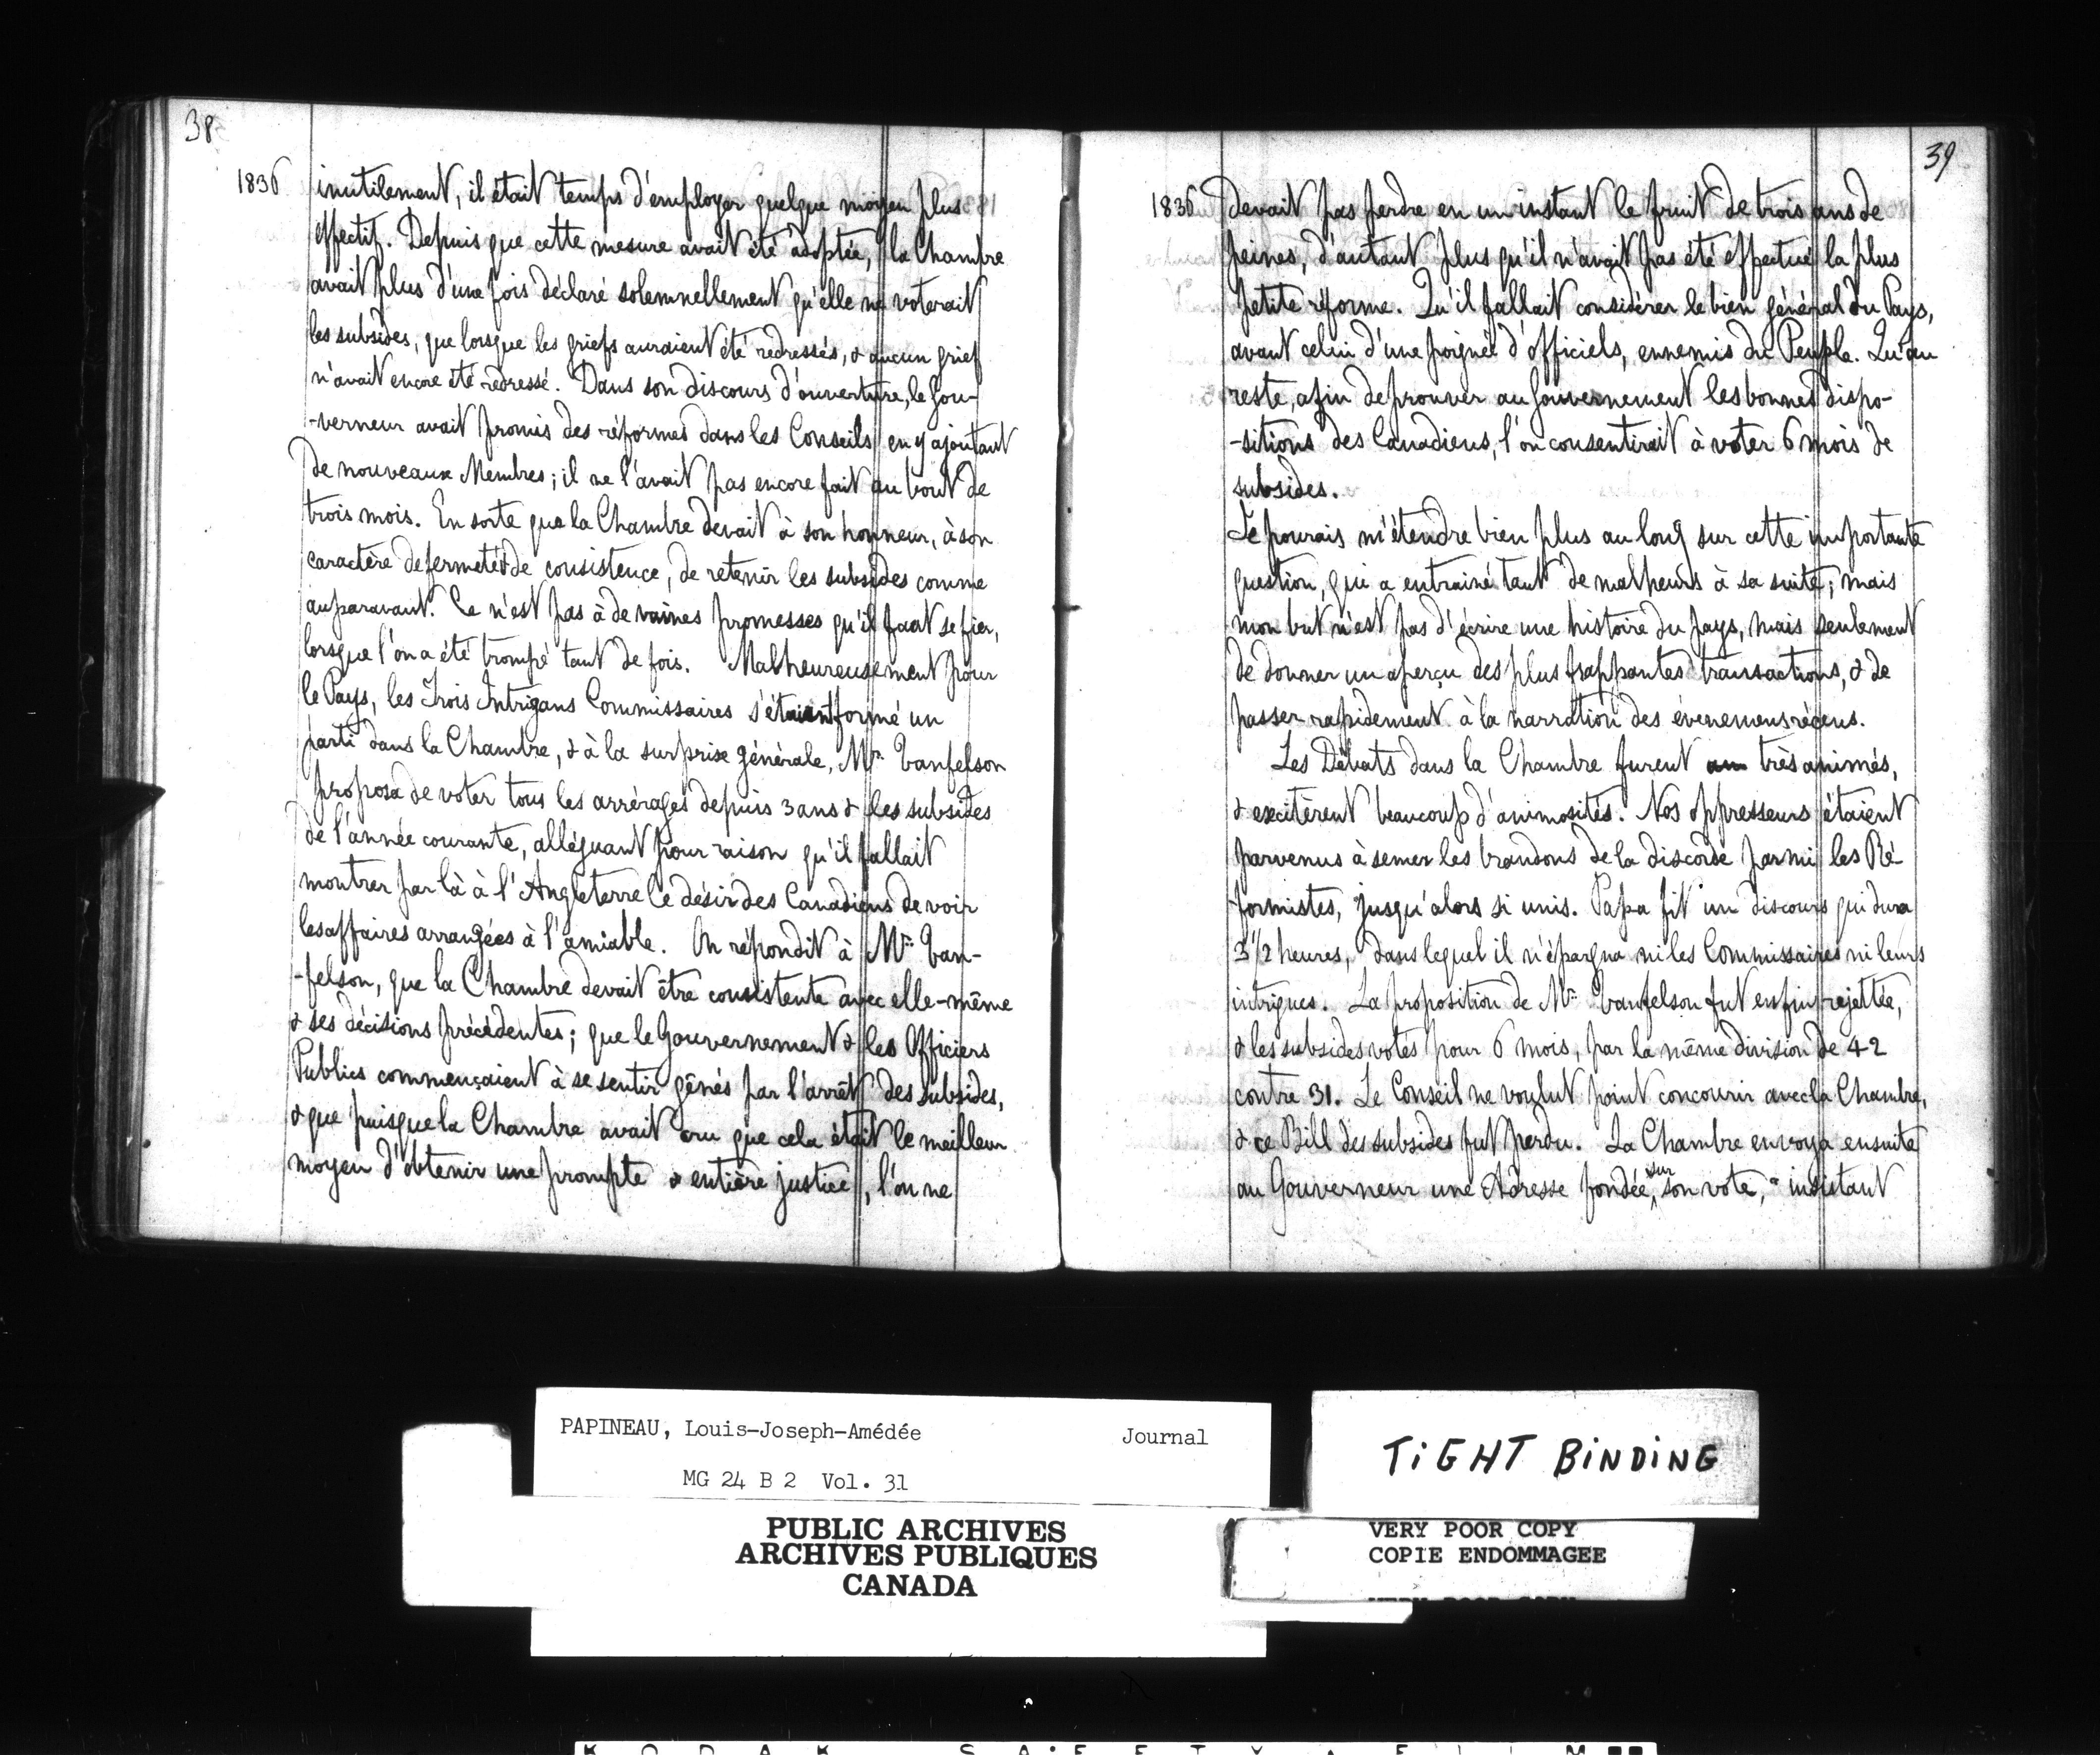 38
1836
inutilement, il était temps d'employer quelque moyen plus
effectif. Depuis que cette mesure avait été adoptée, la Chambre
avait plus d'une fois déclaré solemnellement qu'elle ne voterait
les subsides, que lorsque les griefs auraient été redressés, & aucun grief
n'avait encore été redressé. Dans son discours d'ouverture, le Gou-
-verneur avait promis des réformes dans les Conseils en y ajoutant
de nouveaux Membres; il ne l'avait pas encore fait au bout de
trois mois. En sorte que la Chambre devait à son honneur, à son
caractère de fermeté & de consistence, de retenir les subsides comme
auparavant. Ce n'est pas à de vaines promesses qu'il faut se fier,
lorsque l'on a été trompé tant de fois. Malheureusement pour
le Pays, les Trois Intrigans Commissaires s'étaient formé un
parti dans la Chambre, & à la surprise générale, Mr. Vanfelson
proposa de voter tous les arrérages depuis 3 ans & les subsides
de l'année courante, alléguant pour raison qu'il fallait
montrer par là à l'Angleterre le désir des Canadiens de voir
les affaires arrangées à l'amiable. On répondit à Mr. Van-
-felson, que la Chambre devait être consistente avec elle-même
& ses décisions précédentes; que le Gouvernement & les Officiers
Publics commençaient à se sentir gênés par l'arrêt des subsides,
& que puisque la Chambre avait cru que cela était le meilleur
moyen d'obtenir une prompte & entière justice, l'on ne
39
1836
devait pas perdre en un instant le fruit de trois ans de
peines, d'autant plus qu'il n'avait pas été effectué la plus
petite réforme. Qu'il fallait considérer le bien général du Pays,
avant celui d'une poignée d'officiels, ennemis du Peuple. Qu'au
reste, afin de prouver au Gouvernement les bonnes dispo-
-sitions des Canadiens, l'on consentirait à voter 6 mois de
subsides.
Je pourais m'étendre bien plus au long sur cette importante
question, qui a entrainé tant de malheurs à sa suite; mais
mon but n'est pas d'écrire une histoire du pays, mais seulement
de donner un aperçu des plus frappantes transactions, & de
passer rapidement à la narration des évenemens récens.
Les Débats dans la Chambre furent très animés,
& excitèrent beaucoup d'animosités. Nos oppresseurs étaient
parvenus à semer les brandons de la discorde parmi les Ré-
-formistes, jusqu'alors si unis. Papa fit un discours qui dura
3 1/2 heures, dans lequel il n'épargna ni les Commissaires ni leurs
intrigues. La proposition de Mr. Vanfelson fut enfin rejettée,
& les subsides votés pour 6 mois, par la même division de 42
contre 31. Le Conseil ne voulut point concourir avec la Chambre,
& ce Bill des subsides fut perdu. La Chambre envoya ensuite
au Gouverneur une Adresse fondée sur son vote, & insistant
PAPINEAU, Louis-Joseph-Amédée Journal
MG 24 B 2 Vol. 31
PUBLIC ARCHIVES
ARCHIVES PUBLIQUES
CANADA
TIGHT BINDING
VERY POOR COPY
COPIE ENDOMMAGEE
KODAK SAFETY FILM